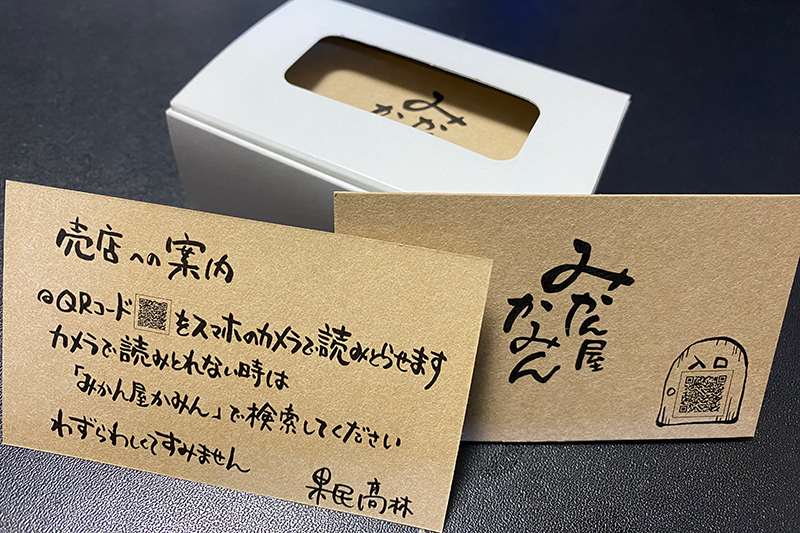 みか
か
売店への案内
@QRコード をスマホのカメラで読みとらせます
カメラで読みとれない時は
「みかん屋かみん」で検索してください
わずらわしくてすみません
果民高林
みかん屋
かみん
入口